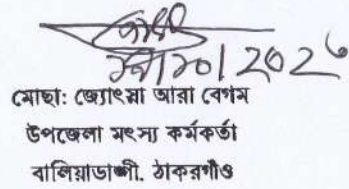 মোছা: জ্যোৎস্না আরা বেগম
উপজেলা মৎস্য কর্মকর্তা
বালিয়াডাঙ্গী, ঠাকুরগাঁও